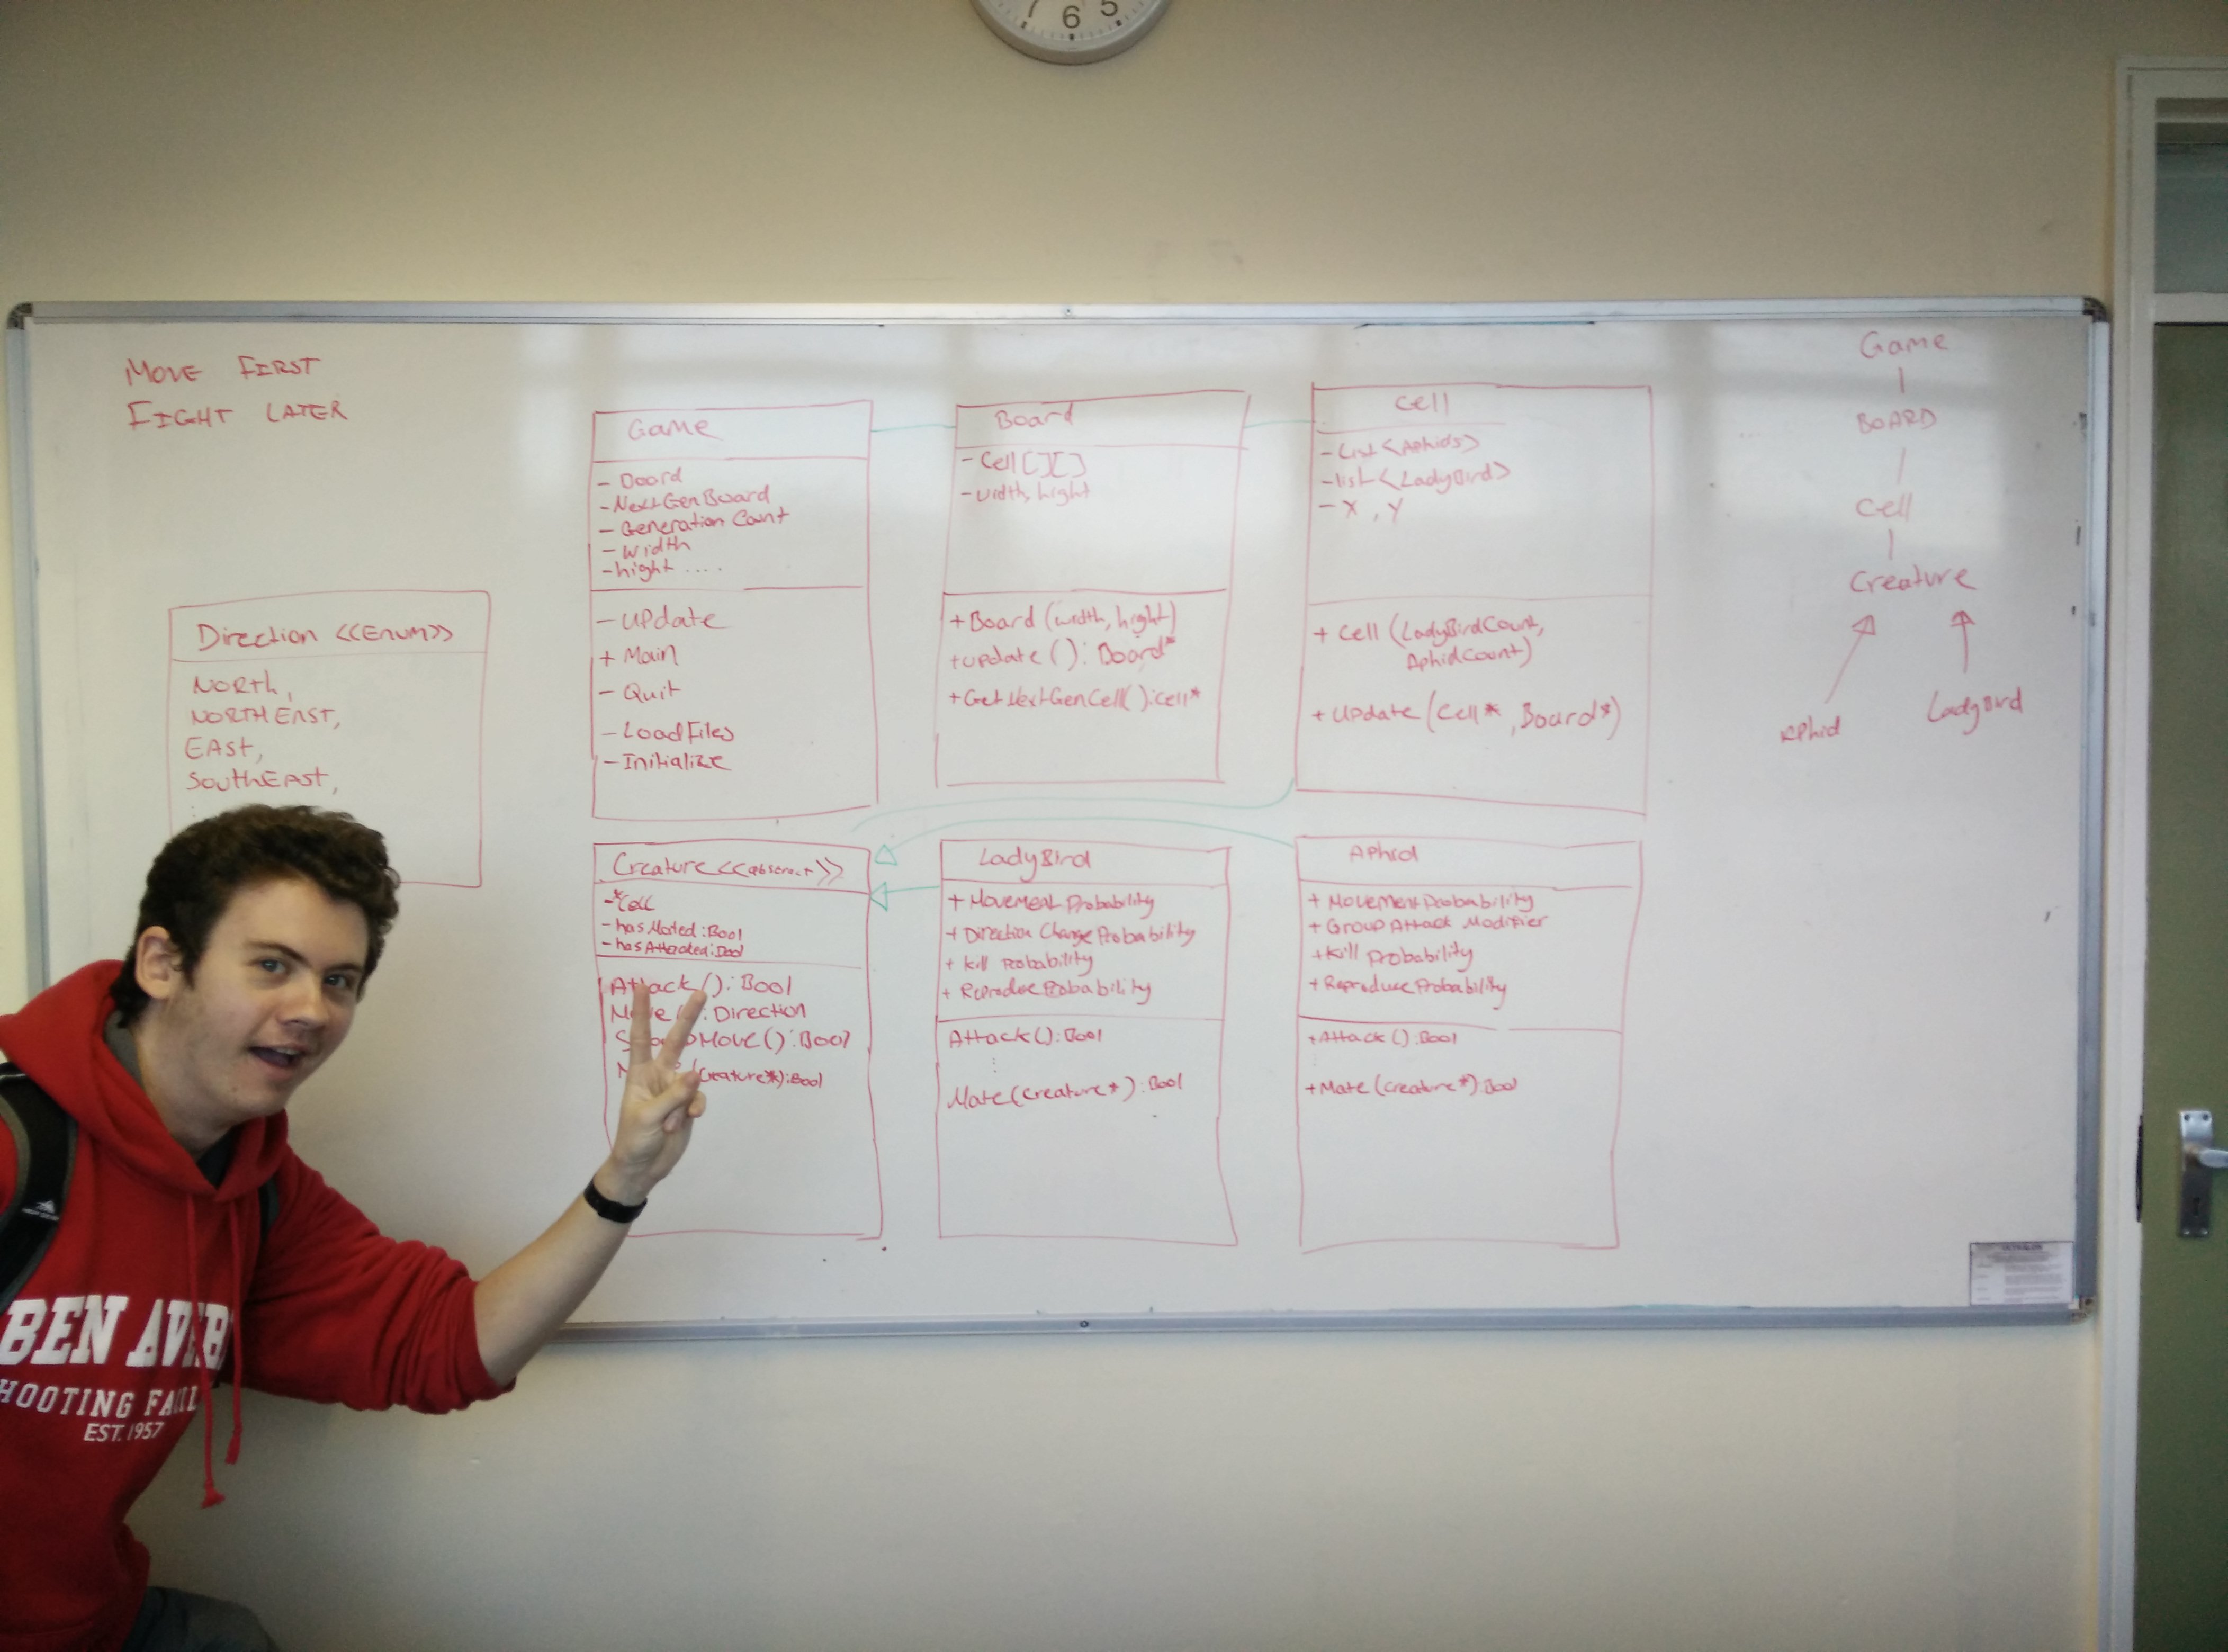 7 6 5
MOVE FIRST
FIGHT LATER
Direction <<Enum>>
NORTH,
NORTHEAST,
EAST,
SOUTHEAST,
Game
- Board
- NextGenBoard
- Generation Count
- width
- hight ....
- UPdate
+ Main
- Quit
- LoadFiles
- Initialize
Board
- Cell[][]
- width, hight
+ Board (width, hight)
+ update () : Board*
+ GetNextGenCell() : Cell*
Cell
- List <Aphids>
- list <LadyBird>
- X , Y
+ Cell (LadyBirdCount,
AphidCount)
+ UPdate (Cell* , Board*)
Game
BOARD
Cell
Creature
Aphid
LadyBird
Creature <<abstract>>
- *Cell
- hasMated : Bool
- hasAttacked : Bool
Attack () : Bool
Move () : Direction
Move () : Bool
(Creature*) : Bool
LadyBird
+ Movement Probability
+ Direction Change Probability
+ Kill Probability
+ Reproduce Probability
Attack () : Bool
Mate (Creature*) : Bool
Aphid
+ Movement Probability
+ Group Attack Modifier
+ Kill Probability
+ Reproduce Probability
+ Attack () : Bool
+ Mate (Creature*) : Bool
BEN AVE
HOOTING FACIL
EST. 1957